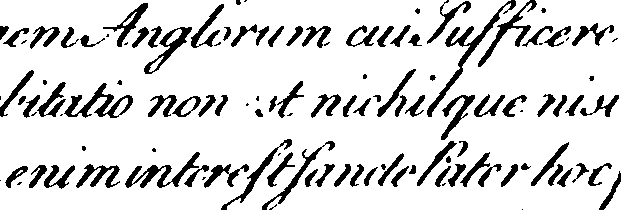 nem Anglorum cui Sufficere
bitatio non est nichilque nisi
enim interest Sancte Pater hoc